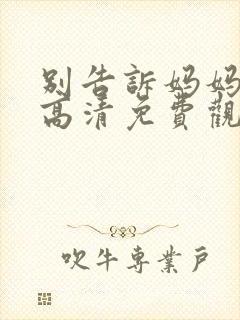 別告訴妈妈
高清免費觀
吹牛専業戸